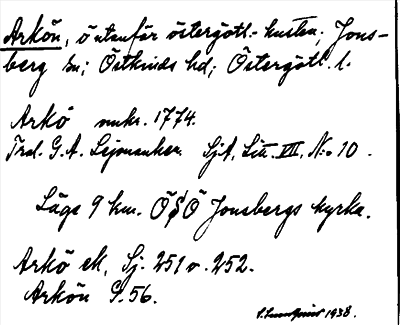 Arkön, ö utanför östergötl.-kusten; Jons-
berg sn; Östkinds hd; Östergötl. l.
Arkö omkr. 1774.
Trol. G. A. Leijonanker. SjA, Litt. VII, No 10.
Läge 9 km. ÖSÖ Jonsbergs kyrka.
Arkö ek, Sj. 251 o. 252.
Arkön S. 56.
1938.